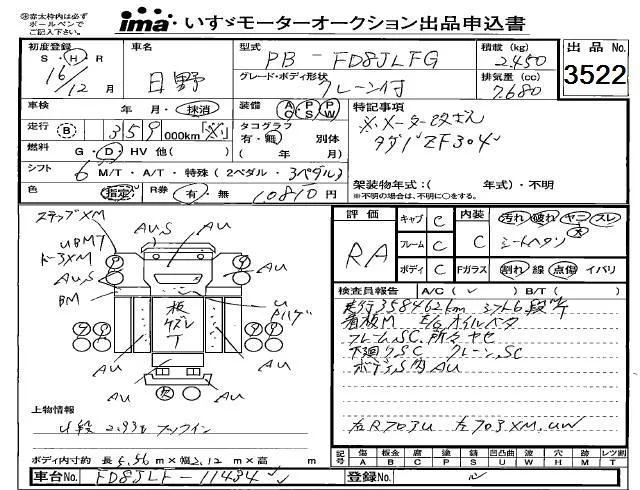 ※赤太枠内は必ず
ボールペンで
ご記入下さい。
ima いすゞモーターオークション出品申込書
初度登録 車名 型式 積載(kg) 出品No.
S・H・R 16/12月 日野 PB-FD8JLFG 2,450
グレード・ボディ形状 クレーン付 排気量(cc) 7,680
3522
車検 年・月・抹消 装備 AC PS PW 特記事項
走行 B 359,000km ※ タコグラフ ※メーター改ざん
有・無 別体 タダノZF304
燃料 G・D・HV 他( ) ( 年 月)
シフト 6 M/T・A/T・特殊(2ペダル・3ペダル)
架装物年式:( 年式)・不明
※不明の場合は、不明に○をする。
色 指定 R券 有・無 10,810円
評価 キャブ C 内装 汚れ 破れ ヤニ スレ
RA フレーム C C シートヘタリ 大
ボディ C Fガラス 割れ 線 点傷 イバリ
ステップXM
AU,S
AU
UBMT
ドー3XM
AU,S
AU
BM
板
ズレ
T
U
AU
AU
AU
AU
検査員報告 A/C( ) B/T( )
走行358462km シフト6段
看板M E/G オイルベタ
フレームSC,所々ヤセ
下廻りSC クレーンSC
ボデーS内AU
左R703U 左703XM,UW
上物情報
4段 2.93t フックイン
ボディ内寸約 長5.56m×幅2.12m×高 m
記号 傷 板金 腐 塗 錆 凹凸曲 波 穴 無 レツ割
A B C P S U W H M T
車台No. FD8JLF-11434
登録No.